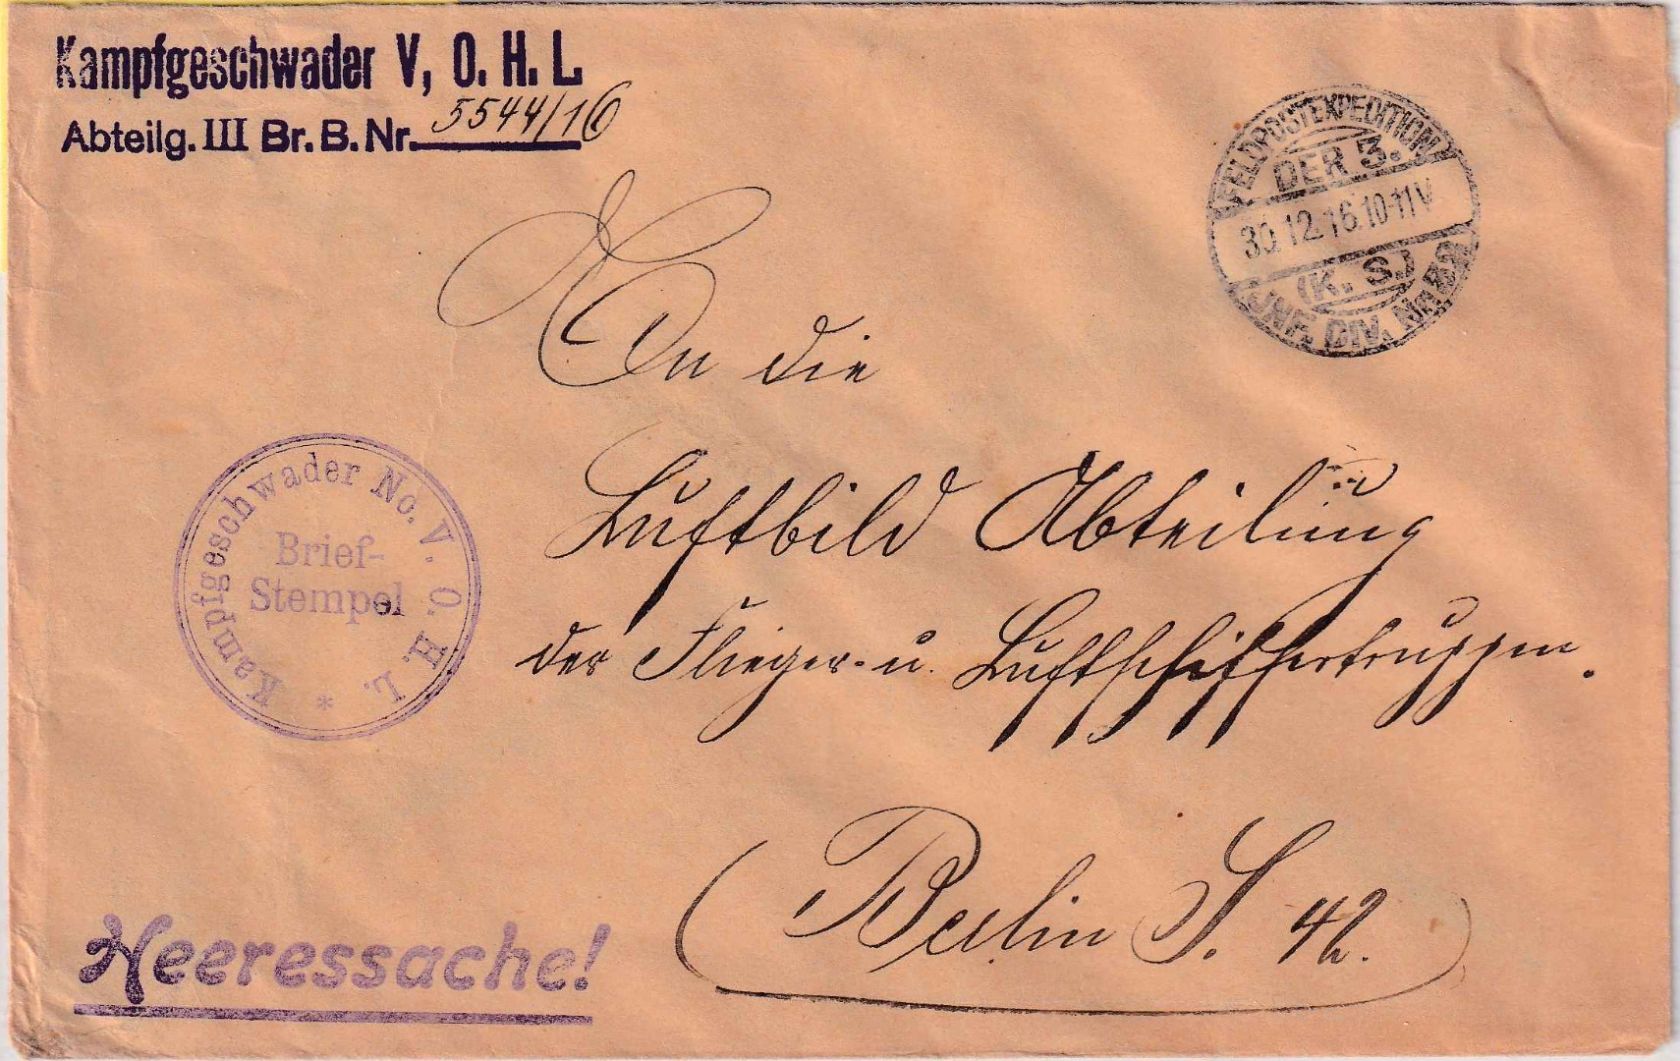 Kampfgeschwader V, O. H. L.
Abteilg. III Br. B. Nr. 5544/16
FELDPOSTEXPEDITION
DER 3.
30.12.16.10-11V
(K. S.)
INF. DIV. Nr.
An die
Luftbild Abteilung
der Flieger- u. Luftschiffertruppen.
Kampfgeschwader No. V. O. H. L.
*
Brief-
Stempel
Berlin S. 42.
Heeressache!